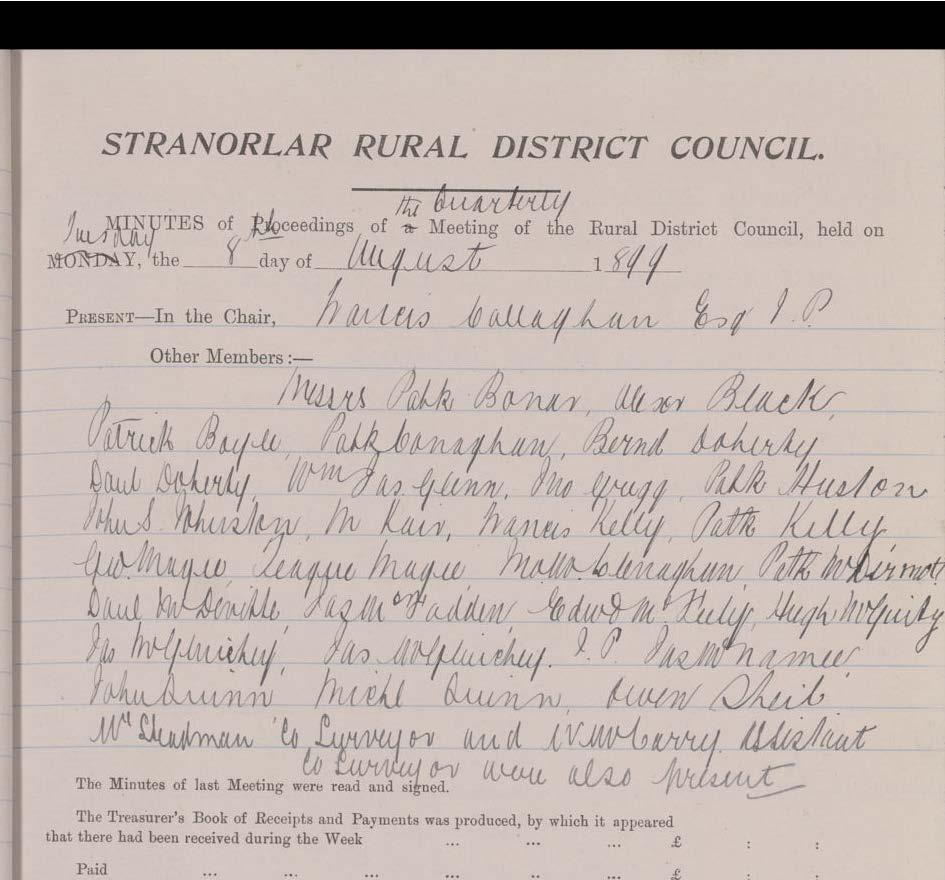 STRANORLAR RURAL DISTRICT COUNCIL.
the Quarterly
MINUTES of Proceedings of a Meeting of the Rural District Council, held on
Tuesday
MONDAY, the 8 day of August 1899
PRESENT—In the Chair, Francis Callaghan Esq J. P.
Other Members:—
Messrs Patk Bonar, Alexr Black,
Patrick Boyle, Patk Conaghan, Bernd Doherty
Danl Doherty, Wm Jas Glenn, Jno Gregg, Patk Huston
John S. Johnston, M Kair, Francis Kelly, Patk Kelly
Geo. Magee, Teague Magee, Clenaghan Patk McDirmott
Danl McDevitte, Jas McFadden, Edwd McFeely, Hugh
Jas McGlinchey, Jas McGlinchey. J. P. Jas McNamee
John Quinn Michl Quinn, Owen Sheil
Co Surveyor and Assistant
Co Surveyor were also present
The Minutes of last Meeting were read and signed.
The Treasurer's Book of Receipts and Payments was produced, by which it appeared
that there had been received during the Week ... ... ... £ : :
Paid ... ... ... ... .. ... £ : :